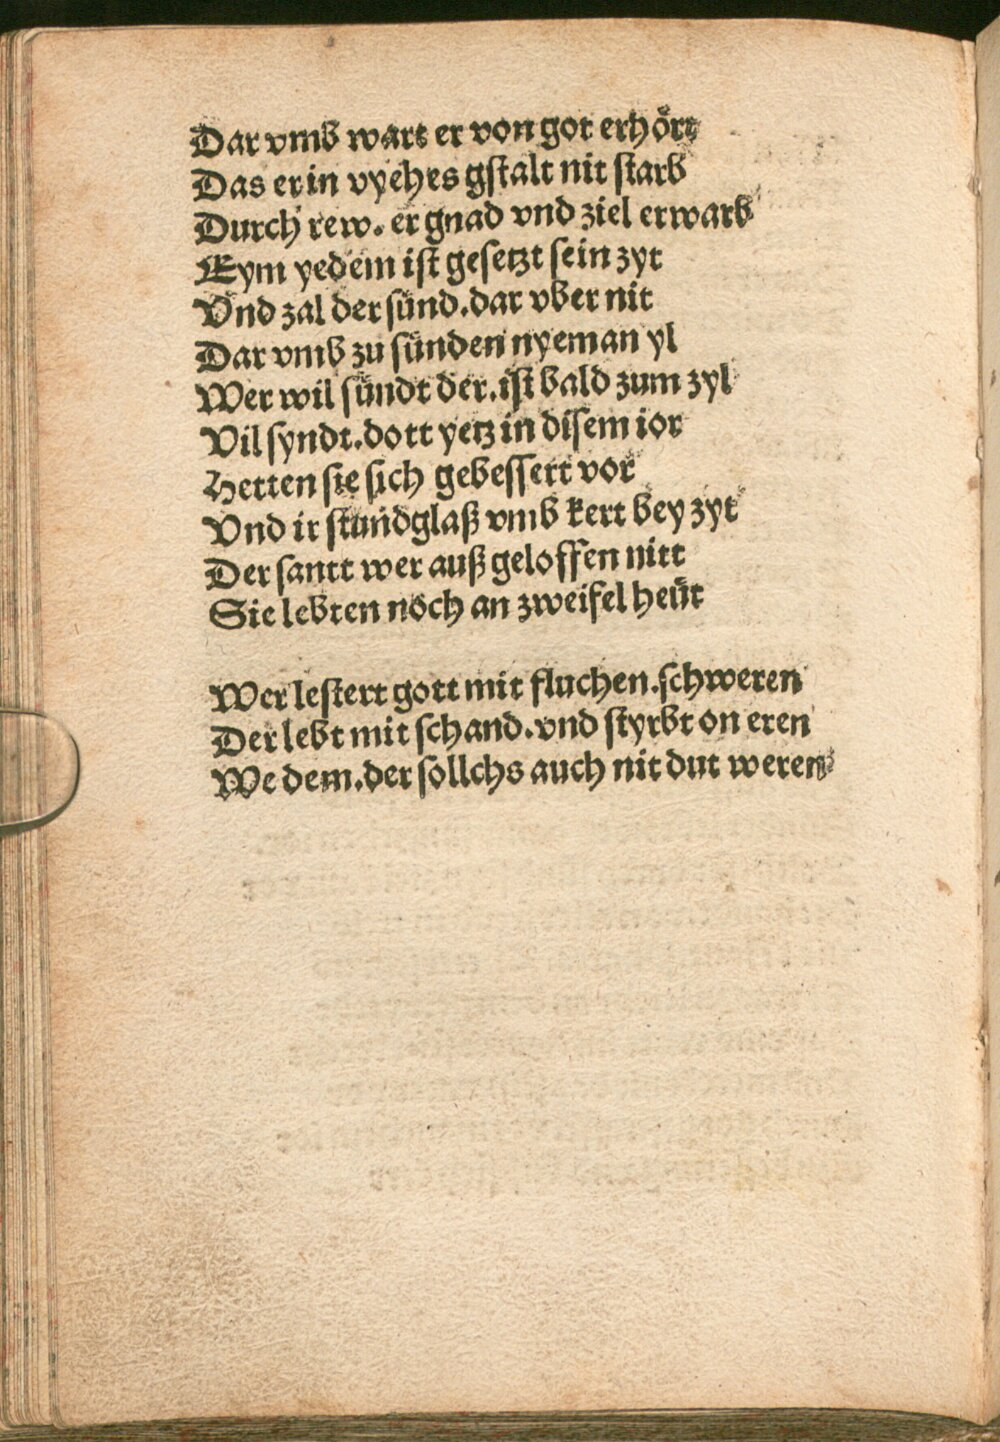 Dar vmb wart er von got erhört
Das er in vyehes gstalt nit starb
Durch rew. er gnad vnd ziel erwarb
Eym yedem ist gesetzt sein zyt
Vnd zal der sünd. dar vber nit
Dar vmb zu sünden nyeman yl
Wer wil sündt der. ist bald zum zyl
Vil syndt. dott yetz in disem ior
Hetten sie sich gebessert vor
Vnd ir stundglaß vmb kert bey zyt
Der santt wer auß geloffen nitt
Sie lebten noch an zweifel heüt
Wer lestert gott mit fluchen. schweren
Der lebt mit schand. vnd styrbt on eren
We dem. der sollchs auch nit dut weren